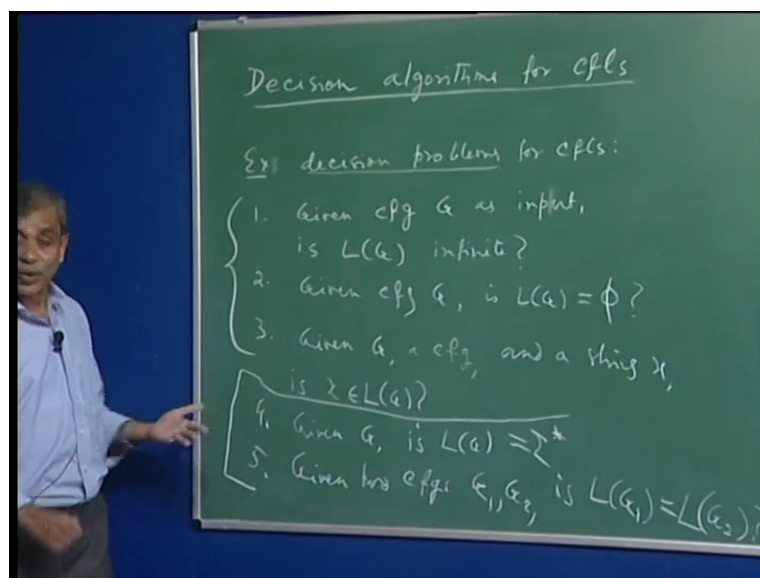 Decision algorithms for cfls
Ex: decision problems for cfls:
1. Given cfg G as input,
is L(G) infinite?
2. Given cfg G, is L(G) = ϕ?
3. Given G, a cfg, and a string x,
is x ∈ L(G)?
4. Given G, is L(G) = Σ*
5. Given two cfgs G₁, G₂, is L(G₁) = L(G₂)?